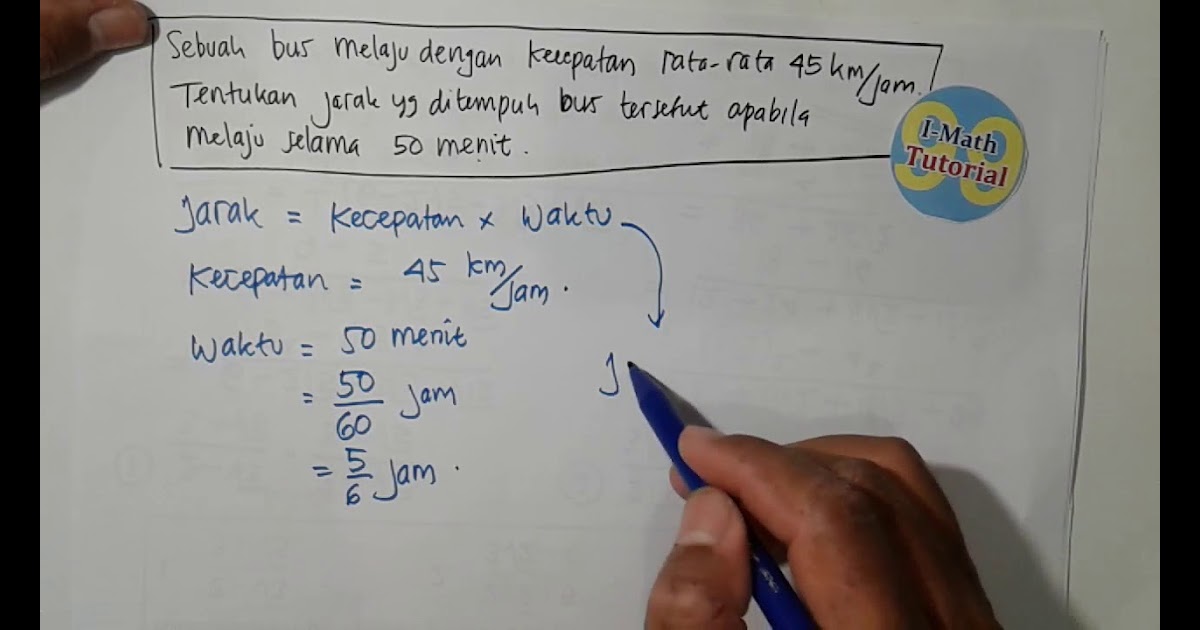 Sebuah bus melaju dengan kecepatan rata-rata 45 km/jam.
Tentukan jarak yg ditempuh bus tersebut apabila
melaju selama 50 menit.
I-Math
Tutorial
Jarak = Kecepatan x Waktu
Kecepatan = 45 km/jam.
Waktu = 50 menit
= 50/60 jam
= 5/6 jam.
J